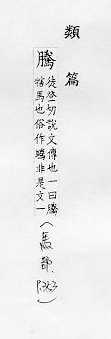 類篇
騰 徒登切說文傳也一曰騰
犗馬也俗作驣非是文一
(馬部 P.363)